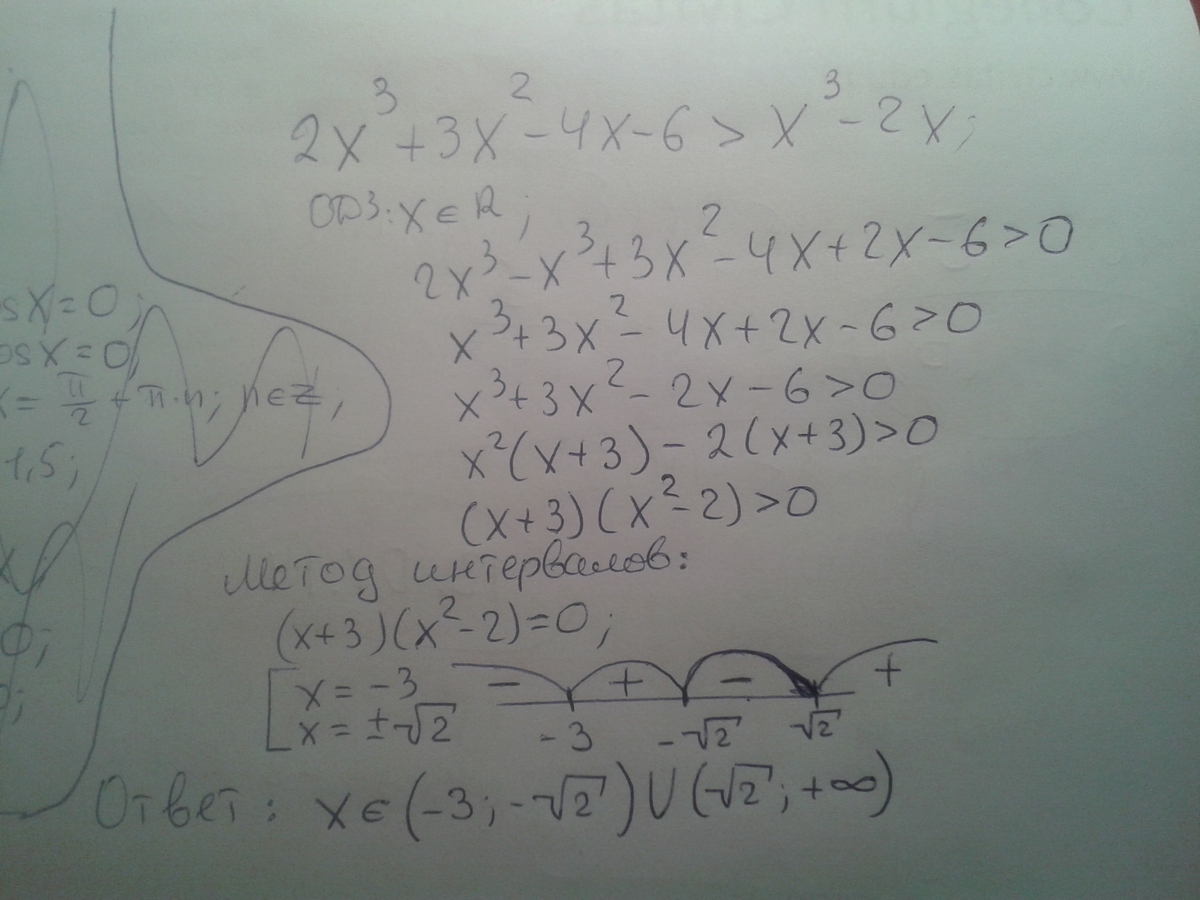 2x³+3x²-4x-6>x³-2x;
ОДЗ: x∈R;
2x³-x³+3x²-4x+2x-6>0
x³+3x²-4x+2x-6>0
x³+3x²-2x-6>0
x²(x+3)-2(x+3)>0
(x+3)(x²-2)>0
Метод интервалов:
(x+3)(x²-2)=0;
[x=-3
x=±√2
- + - +
-3 -√2 √2
Ответ: x∈(-3;-√2)∪(√2;+∞)
osx=0;
osx=0;
x=π/2+π·n; n∈z;
1,5;